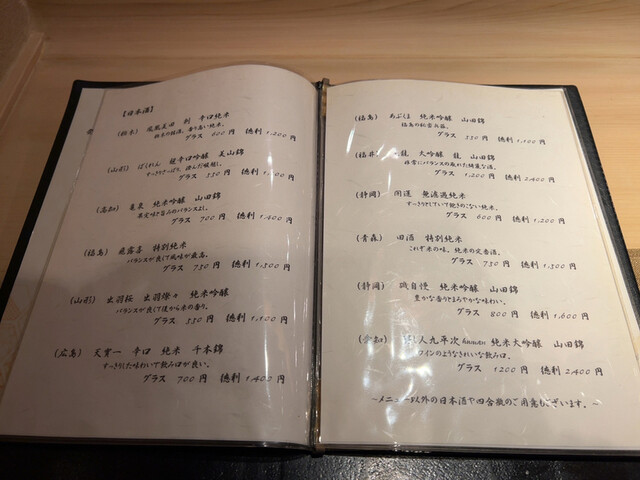 【日本酒】
(栃木) 鳳凰美田 剱 辛口純米
栃木の銘酒。香り高い純米。
グラス 600円 徳利 1,200円
(山形) ばくれん 超辛口吟醸 美山錦
すっきりさっぱり、澄んだ喉越し。
グラス 550円 徳利
(高知) 美丈 純米吟醸 山田錦
グラス 700円 徳利 1,400円
(福島) 飛露喜 特別純米
バランスが良くて風味が最高。
グラス 750円 徳利 1,500円
(山形) 出羽桜 出羽燦々 純米吟醸
バランスが良くて後から米の香り。
グラス 550円 徳利 1,100円
(広島) 天寶一 辛口 純米 千本錦
すっきりした味わいで飲み口が良い。
グラス 700円 徳利 1,400円
(福島) あぶくま 純米吟醸 山田錦
福島の秘蔵お酒。
グラス 550円 徳利 1,100円
(福井) 龍 大吟醸 龍 山田錦
非常にバランスの取れた綺麗な酒。
グラス 1,200 徳利 2,400円
(静岡) 開運 無濾過純米
すっきりとしていて飽きのこない純米。
グラス 600 徳利 1,200円
(青森) 田酒 特別純米
これぞ米の味、純米の定番酒。
グラス 750円 徳利 1,500円
(静岡) 磯自慢 純米吟醸 山田錦
豊かな香りとまろやかな味わい。
グラス 800円 徳利 1,600円
(愛知) 醸し人九平次 human 純米大吟醸 山田錦
ワインのようなきれいな飲み口。
グラス 1200円 徳利 2,400円
～メニュー以外の日本酒や四合瓶のご用意もございます。～